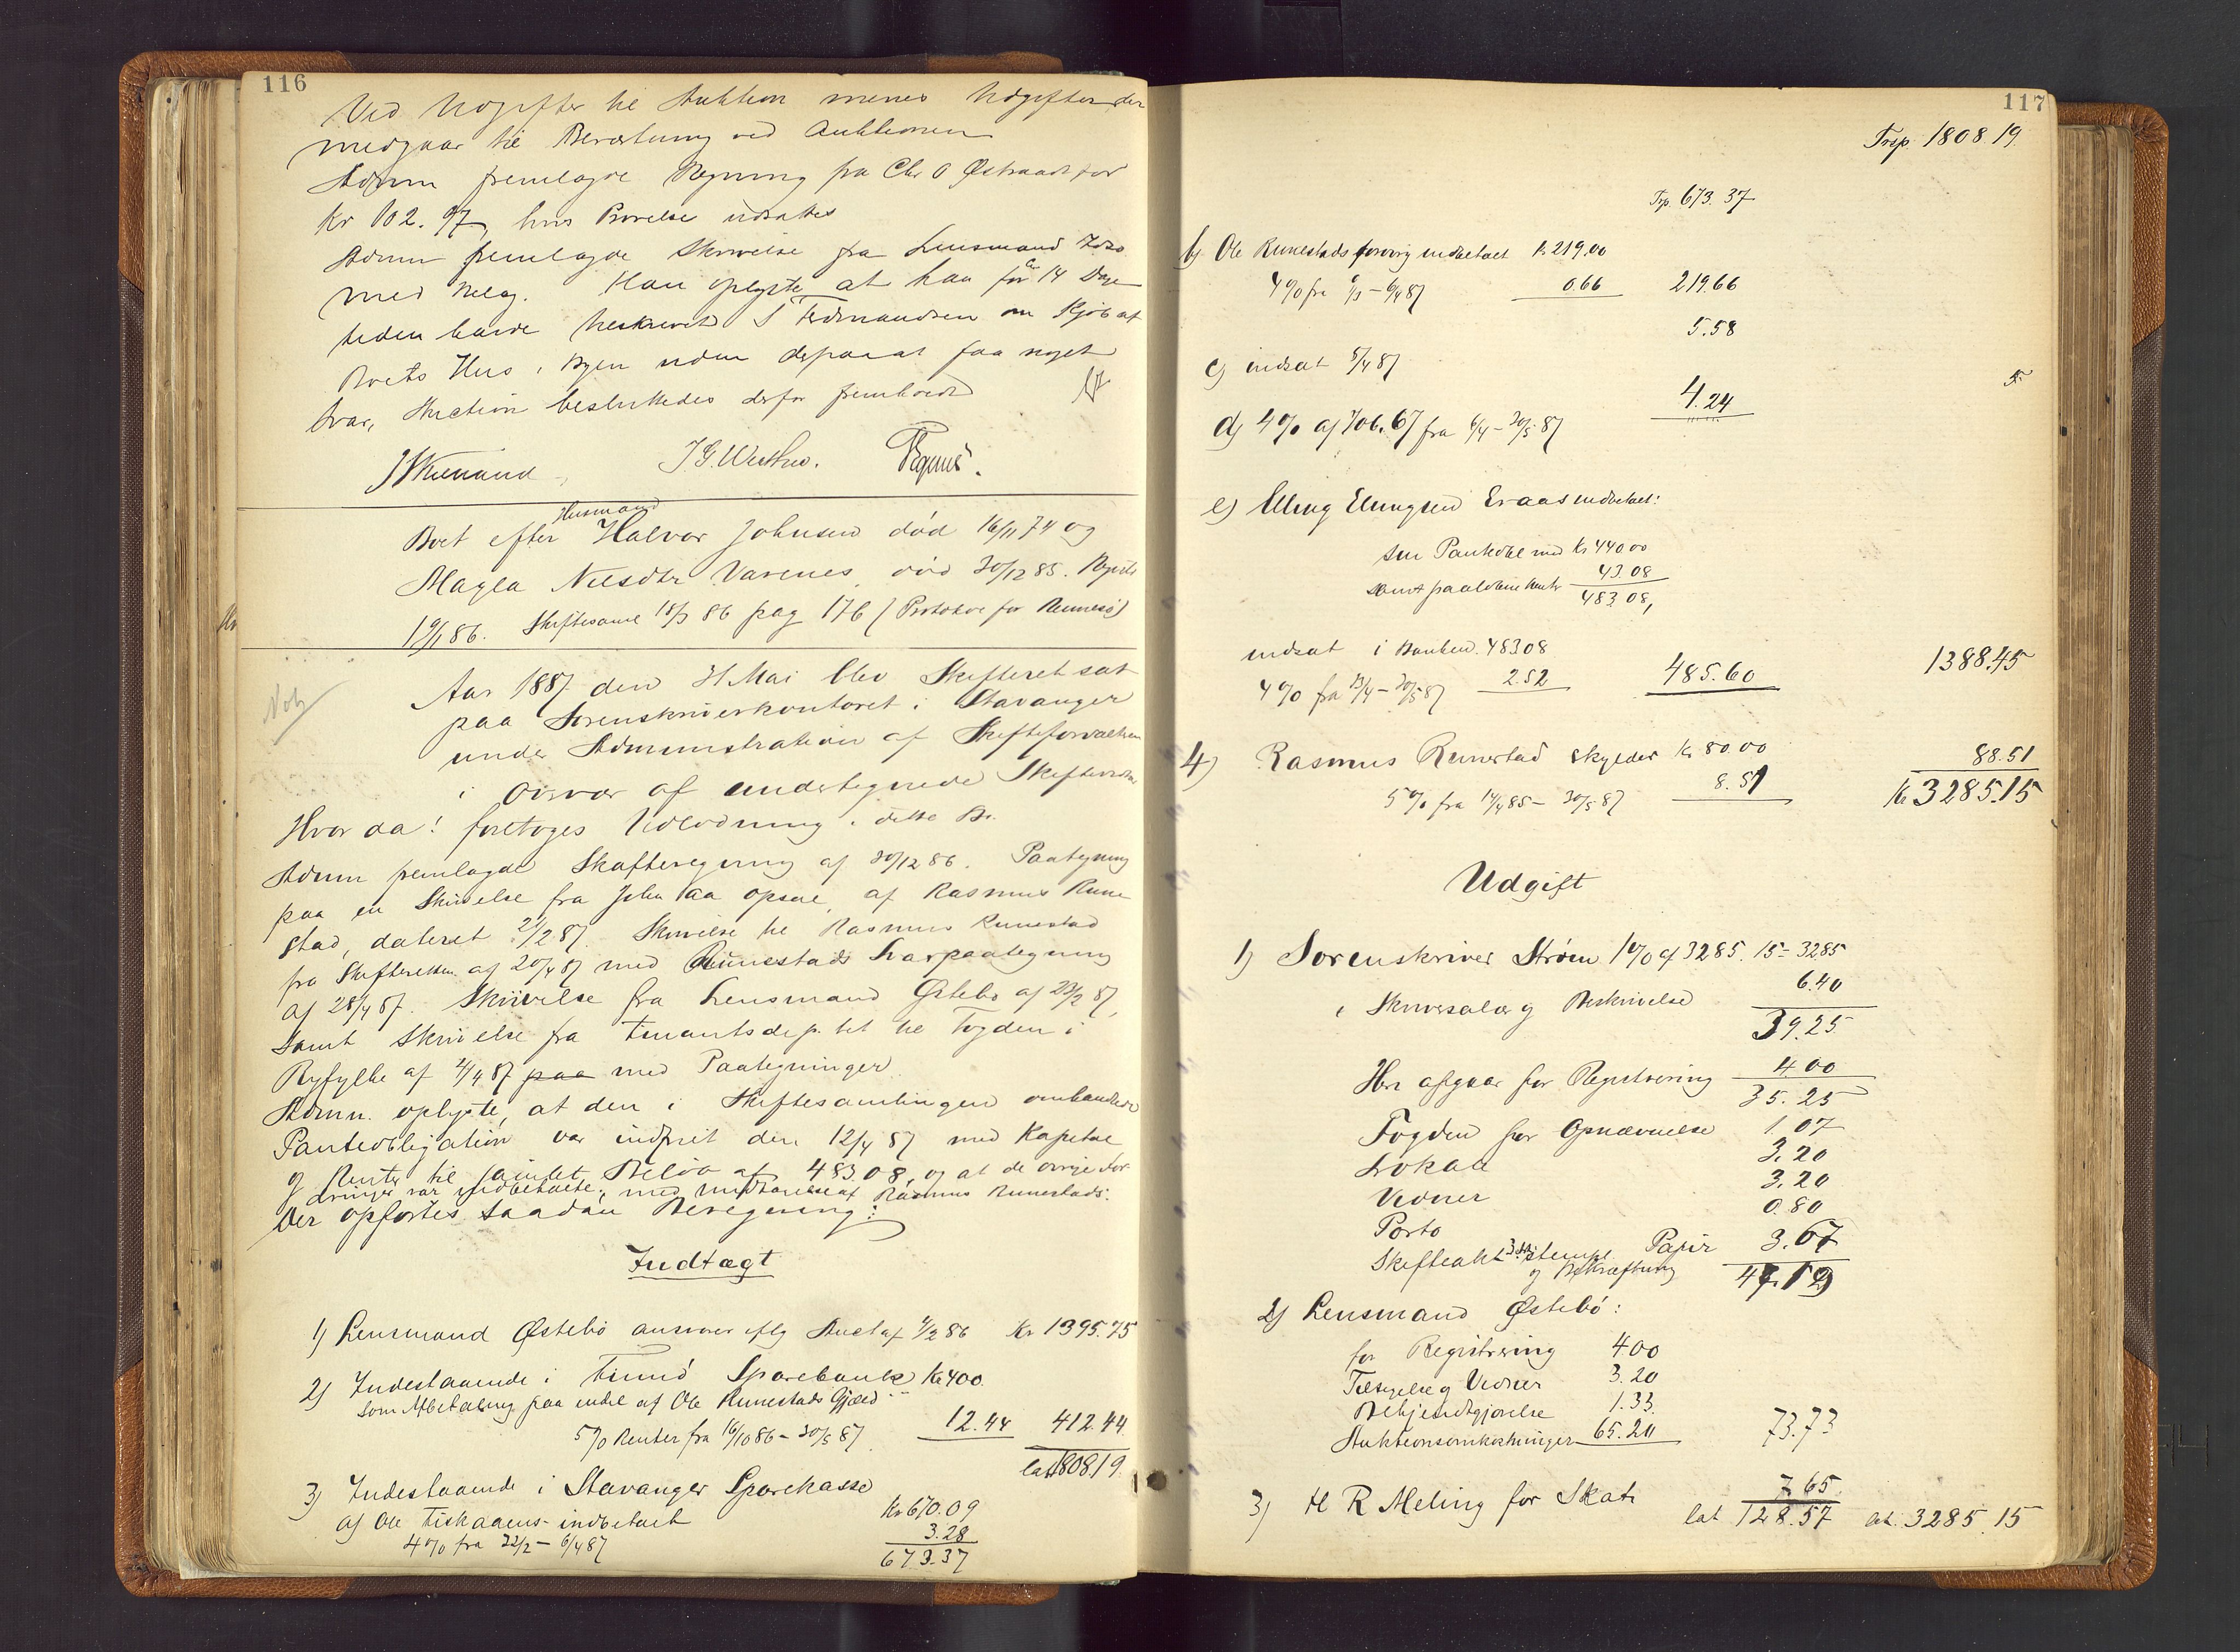 116
Ved Udgifter til Auktion menes Udgifter der
medgaar til Beværtning ved Auktionen
Adm fremlagde Regning fra Chr O Østraadt for
Kr 102.97, hvis Prøvelse udsattes
Adm fremlagde Skrivelse fra Lensmand
med Bilag. Han oplyste at han for ca 14 Dage
siden havde tilskrevet S Tedmandsen om Kjøb af
Boets Hus i Byen uden derpaa at faa noget
Svar, Auction besluttedes derfor fremholdt

Boet efter Husmand Halvor Johnsen død 16/11 74 og
Magla Nilsdtr Varenes død 30/12 85. Registr
19/1 86. Skiftesaml 18/3 86 pag 176 (Protokol for Rennesø)
Not
Aar 1887 den 31 Mai blev Skifteret sat
paa Sorenskriverkontoret i Stavanger
under Administration af Skifteforvalteren
i Overvær af undertegnede Skiftevidne
Hvor da! foretoges Udlodning i dette Bo.
Adm fremlagde Skifteregning af 30/12 86. Paategning
paa en Skrivelse fra John Aa opsal, af Rasmus Rune
stad, dateret 21/2 87. Skrivelse til Rasmus Runestad
fra Skifteretten af 20/4 87 med Runestads Svarpaategning
af 28/4 87. Skrivelse fra Lensmand Østebø af 23/2 87,
samt Skrivelse fra Finantsdep.tet til Fogden i
Ryfylke af 4/4 87 paa med Paategninger
Adm. oplyste, at den i Skiftesamlingen omhandlede
Panteobligation var indfriet den 12/4 87 med Kapital
og Renter til samlet Beløb af 483.08, og at de øvrige For
dringer var indbetalte, med Undtagelse af Rasmus Runestads.
Der opførtes saadan Beregning:
Indtægt
1) Lensmand Østebø ansvarer iflg Auct af 4/2 86 Kr 1395.75
2) Indestaaende i Finnø Sparebank Kr 400.
som Afbetaling paa endel af Ole Runestads Gjæld
5% Renter fra 16/10 86 - 30/5 87 12.44 412.44
lat 1808.19
3) Indestaaende i Stavanger Sparekasse
a) Ole Fiskaaens indbetalt Kr 670.09
4% fra 22/2 - 6/4 87 3.28
673.37
117
Trsp. 1808.19.
Trp. 673.37
b) Ole Runestads forøvrig indbetalt Kr 219.00
4% fra - 6/4 87 0.66 219.66
c) indsat 5/4 87 5.58
d) 4% af 706.67 fra 6/4 - 30/5 87 4.24
e) Elling Elingsen Eraas indbetalt:
sin Panteobl med Kr 440.00
samt paaløbne Renter 43.08
483.08,
indsat i Banken 483.08
4% fra 13/4 - 30/5 87 2.52 485.60 1388.45
4) Rasmus Runestad skylder Kr 80.00
5% fra 14/4 85 - 30/5 87 8.51 88.51
Kr 3285.15
Udgift
1) Sorenskriver Strøm 1% af 3285.15 = 3285
i Skriversalær og Beskrivelse 6.40
39.25
Her afgaar for Registrering 4.00
35.25
Fogden for Opnævnelse 1.07
Lokale 3.20
Vidner 3.20
Porto 0.80
Skifteakt stempl Papir
og Bekræftning 3.67
47.19
2) Lensmand Østebø:
for Registrering 4.00
Tilsigelse og Vidner 3.20
Bekjendtgjørelse 1.33
Auktionsomkostninger 65.20 73.73
3) til R Meling for Skat 7.65
lat 128.57 lat. 3285.15